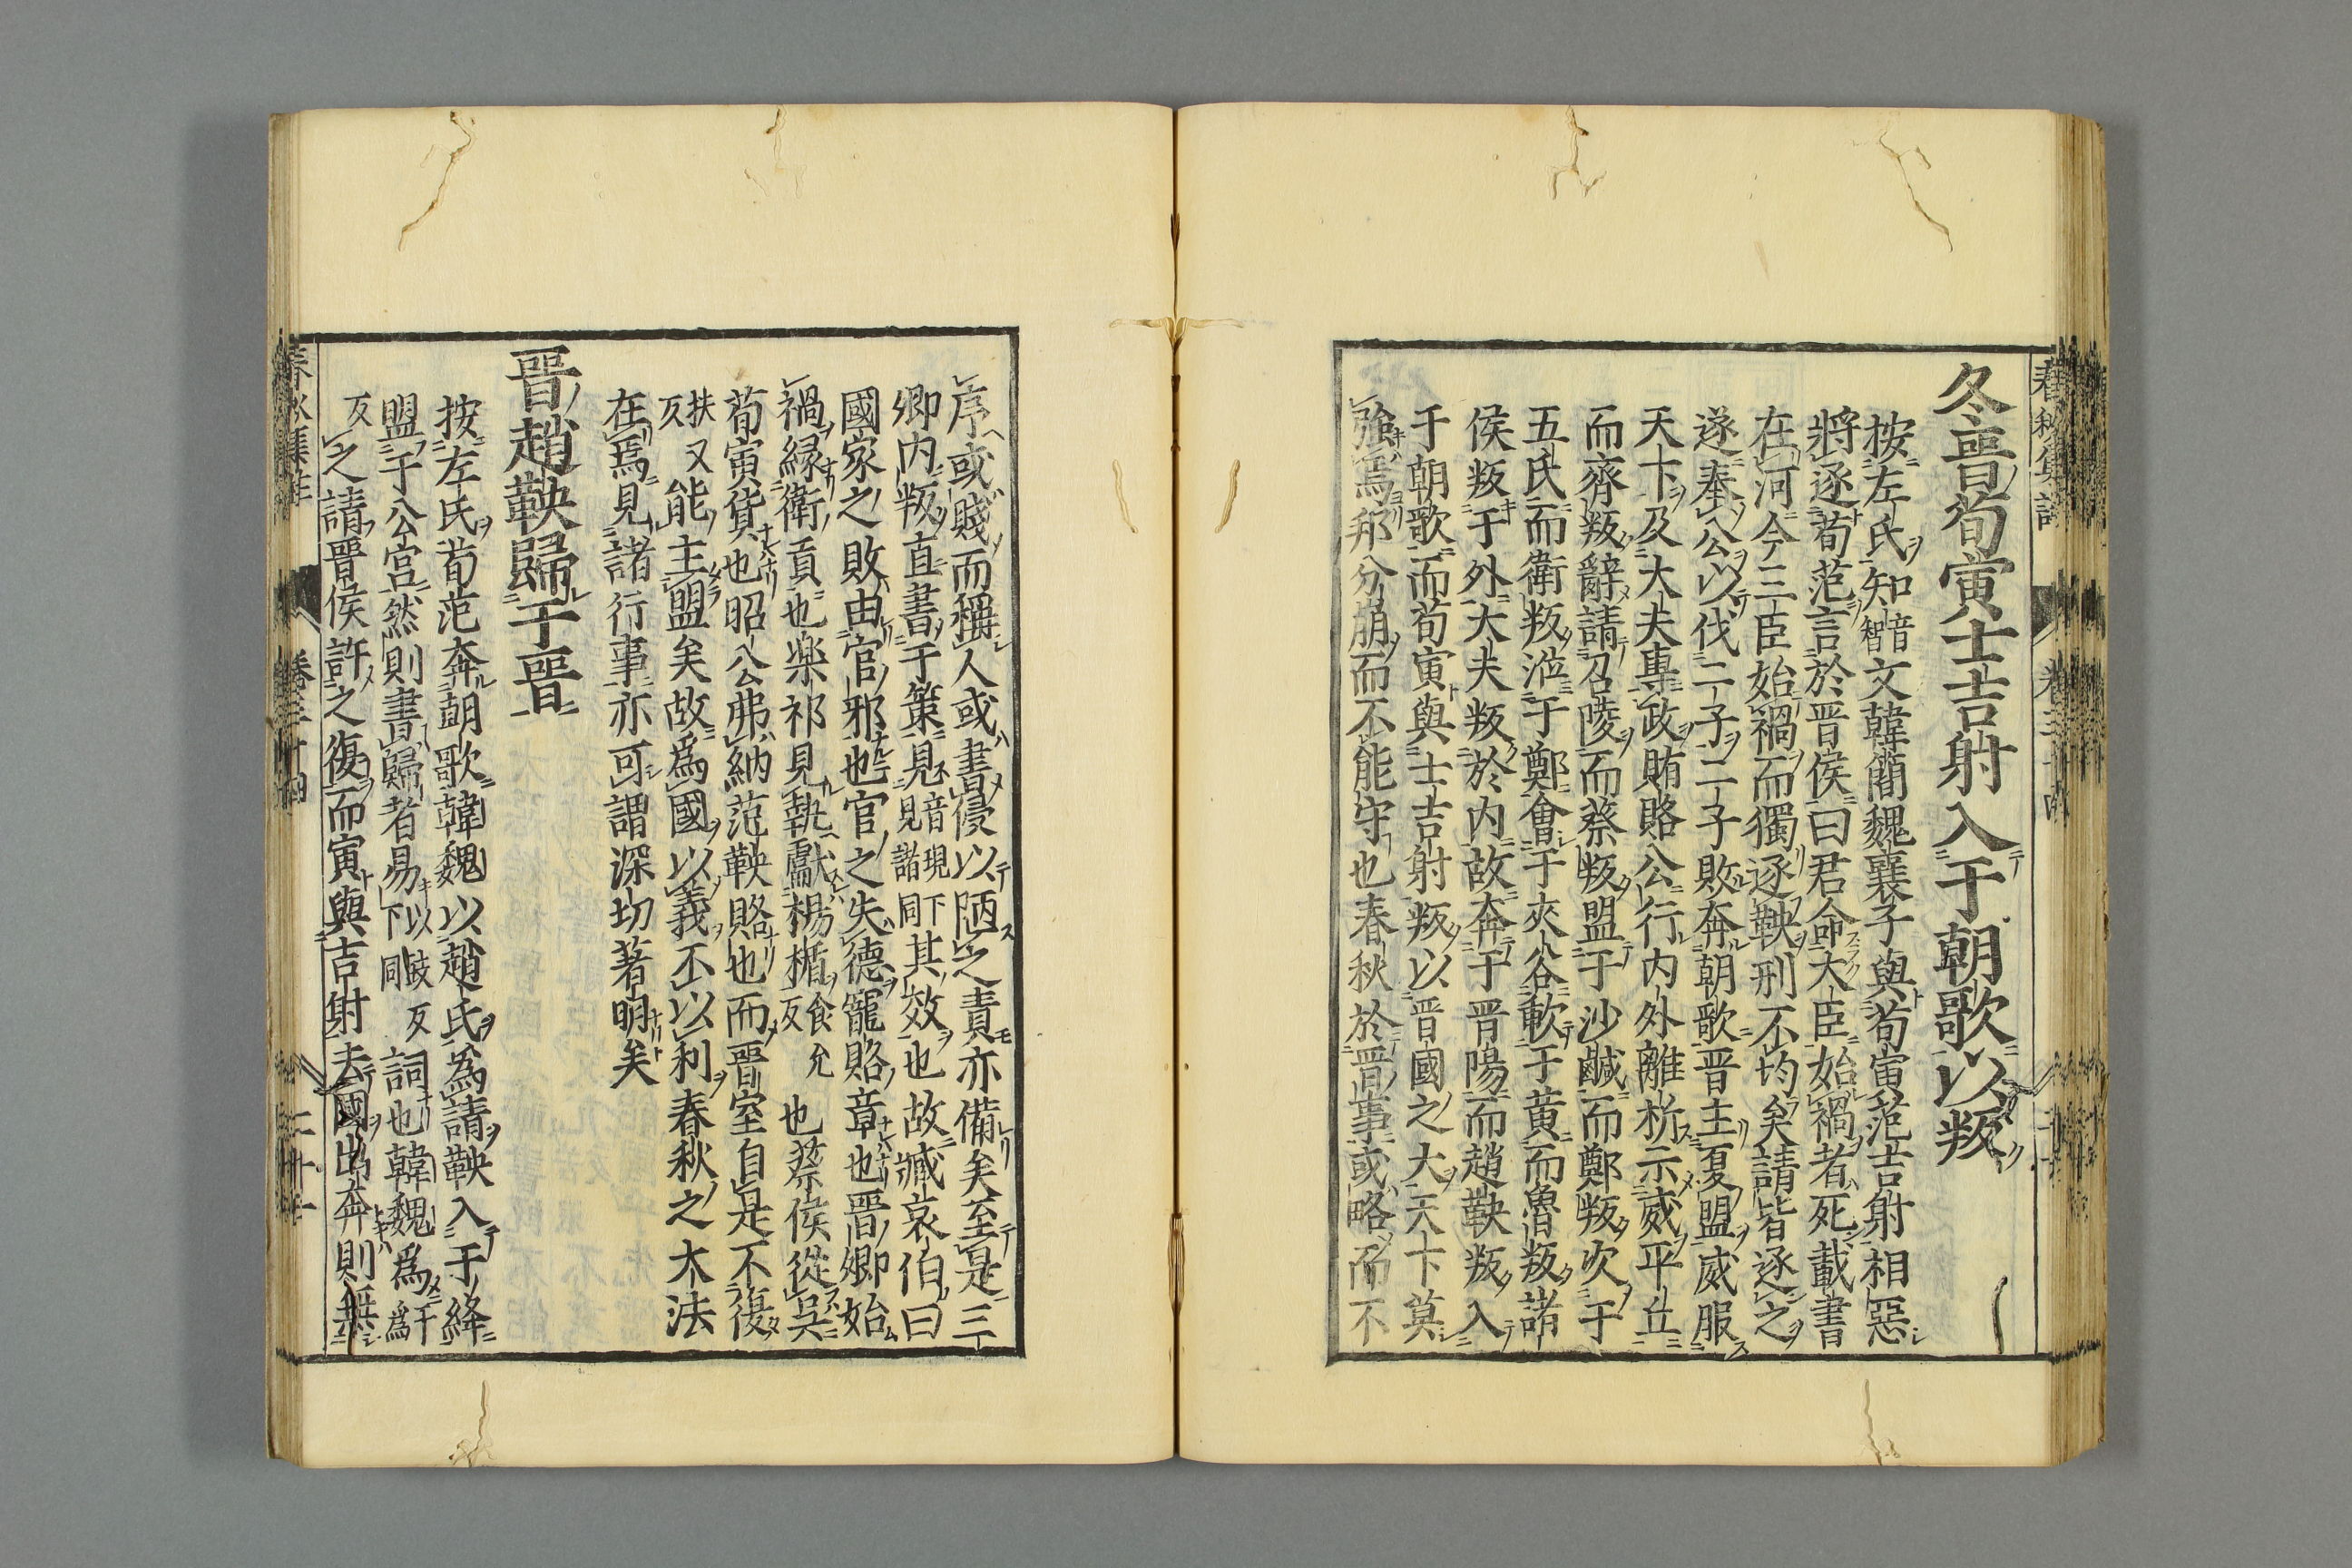 冬晋荀寅士吉射入于朝歌以叛
按左氏知音智文韓簡魏襄子與荀寅范吉射相惡
將逐荀范言於晋侯曰君命大臣始禍者死載書
在河今三臣始禍而獨逐鞅刑不均矣請皆逐之
遂奉公以伐二子二子敗奔朝歌晋主夏盟威服
天下及大夫專政賄賂公行内外離析示威平丘
而齊叛辭請召陵而蔡叛盟于沙鹹而鄭叛次于
五氏而衛叛涖于鄭會于夾谷歃于黄而魯叛諸
侯叛于外大夫叛於内故奔于晋陽而趙鞅叛入
于朝歌而荀寅與士吉射叛以晋國之大天下莫
強焉邦分崩而不能守也春秋於晋事或略而不
序或賤而稱人或書侵以陋之責亦備矣至是三
卿内叛直書于策見音現下見諸同其效也故臧哀伯曰
國家之敗由官邪也官之失德寵賂章也晋卿始
禍縁衛貢也楽祁見執獻楊楯食允反也蔡侯從吳
荀寅貨也昭公弗納范鞅賂也而晋室自是不復
扶又反能主盟矣故爲國以義不以利春秋之大法
在焉見諸行事亦可謂深切著明矣
晋趙鞅歸于晋
按左氏荀范奔朝歌韓魏以趙氏爲請鞅入于絳
盟于公宫然則書歸者易以豉反下同詞也韓魏爲于爲
反之請晋侯許之復而寅與吉射去國出奔則無
春秋集註 卷三十四